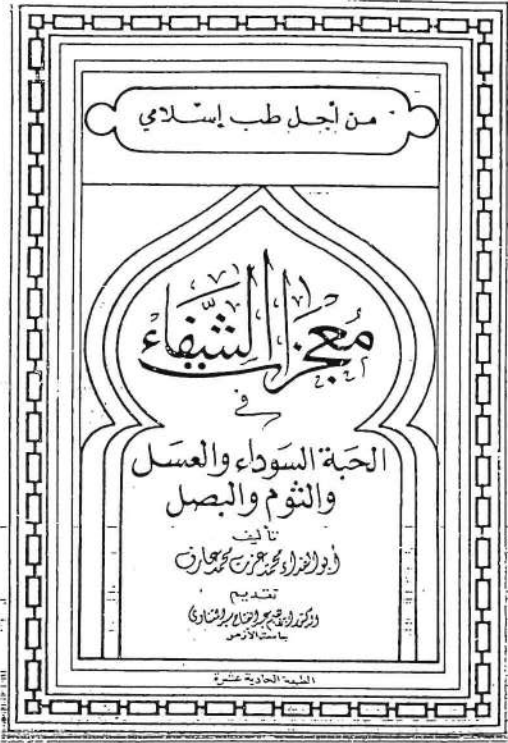 من أجل طب إسلامي
معجزات الشفاء
في
الحبة السوداء والعسل
والثوم والبصل
تأليف
أبو الفداء محمد عزت محمد عارف
تقديم
الدكتور عبد الفتاح
بجامعة الأزهر
الطبعة الحادية عشرة